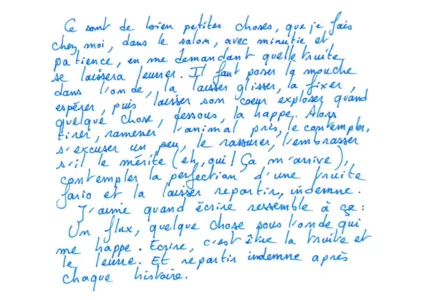 Ce sont de bien petites choses, que je fais
chez moi, dans le salon, avec minutie et
patience, en me demandant quelle truite
se laissera leurrer. Il faut poser la mouche
dans l'onde, la laisser glisser, la fixer,
espérer, puis laisser son coeur exploser quand
quelque chose, dessous, la happe. Alors
tirer, ramener l'animal près, le contempler,
s'excuser un peu, le rassurer, l'embrasser
s'il le mérite (eh, oui ! Ça m'arrive),
contempler la perfection d'une truite
fario et la laisser repartir, indemne.
J'aime quand écrire ressemble à ça :
Un flux, quelque chose sous l'onde qui
me happe. Ecrire, c'est être la truite et
le leurre. Et repartir indemne après
chaque histoire.